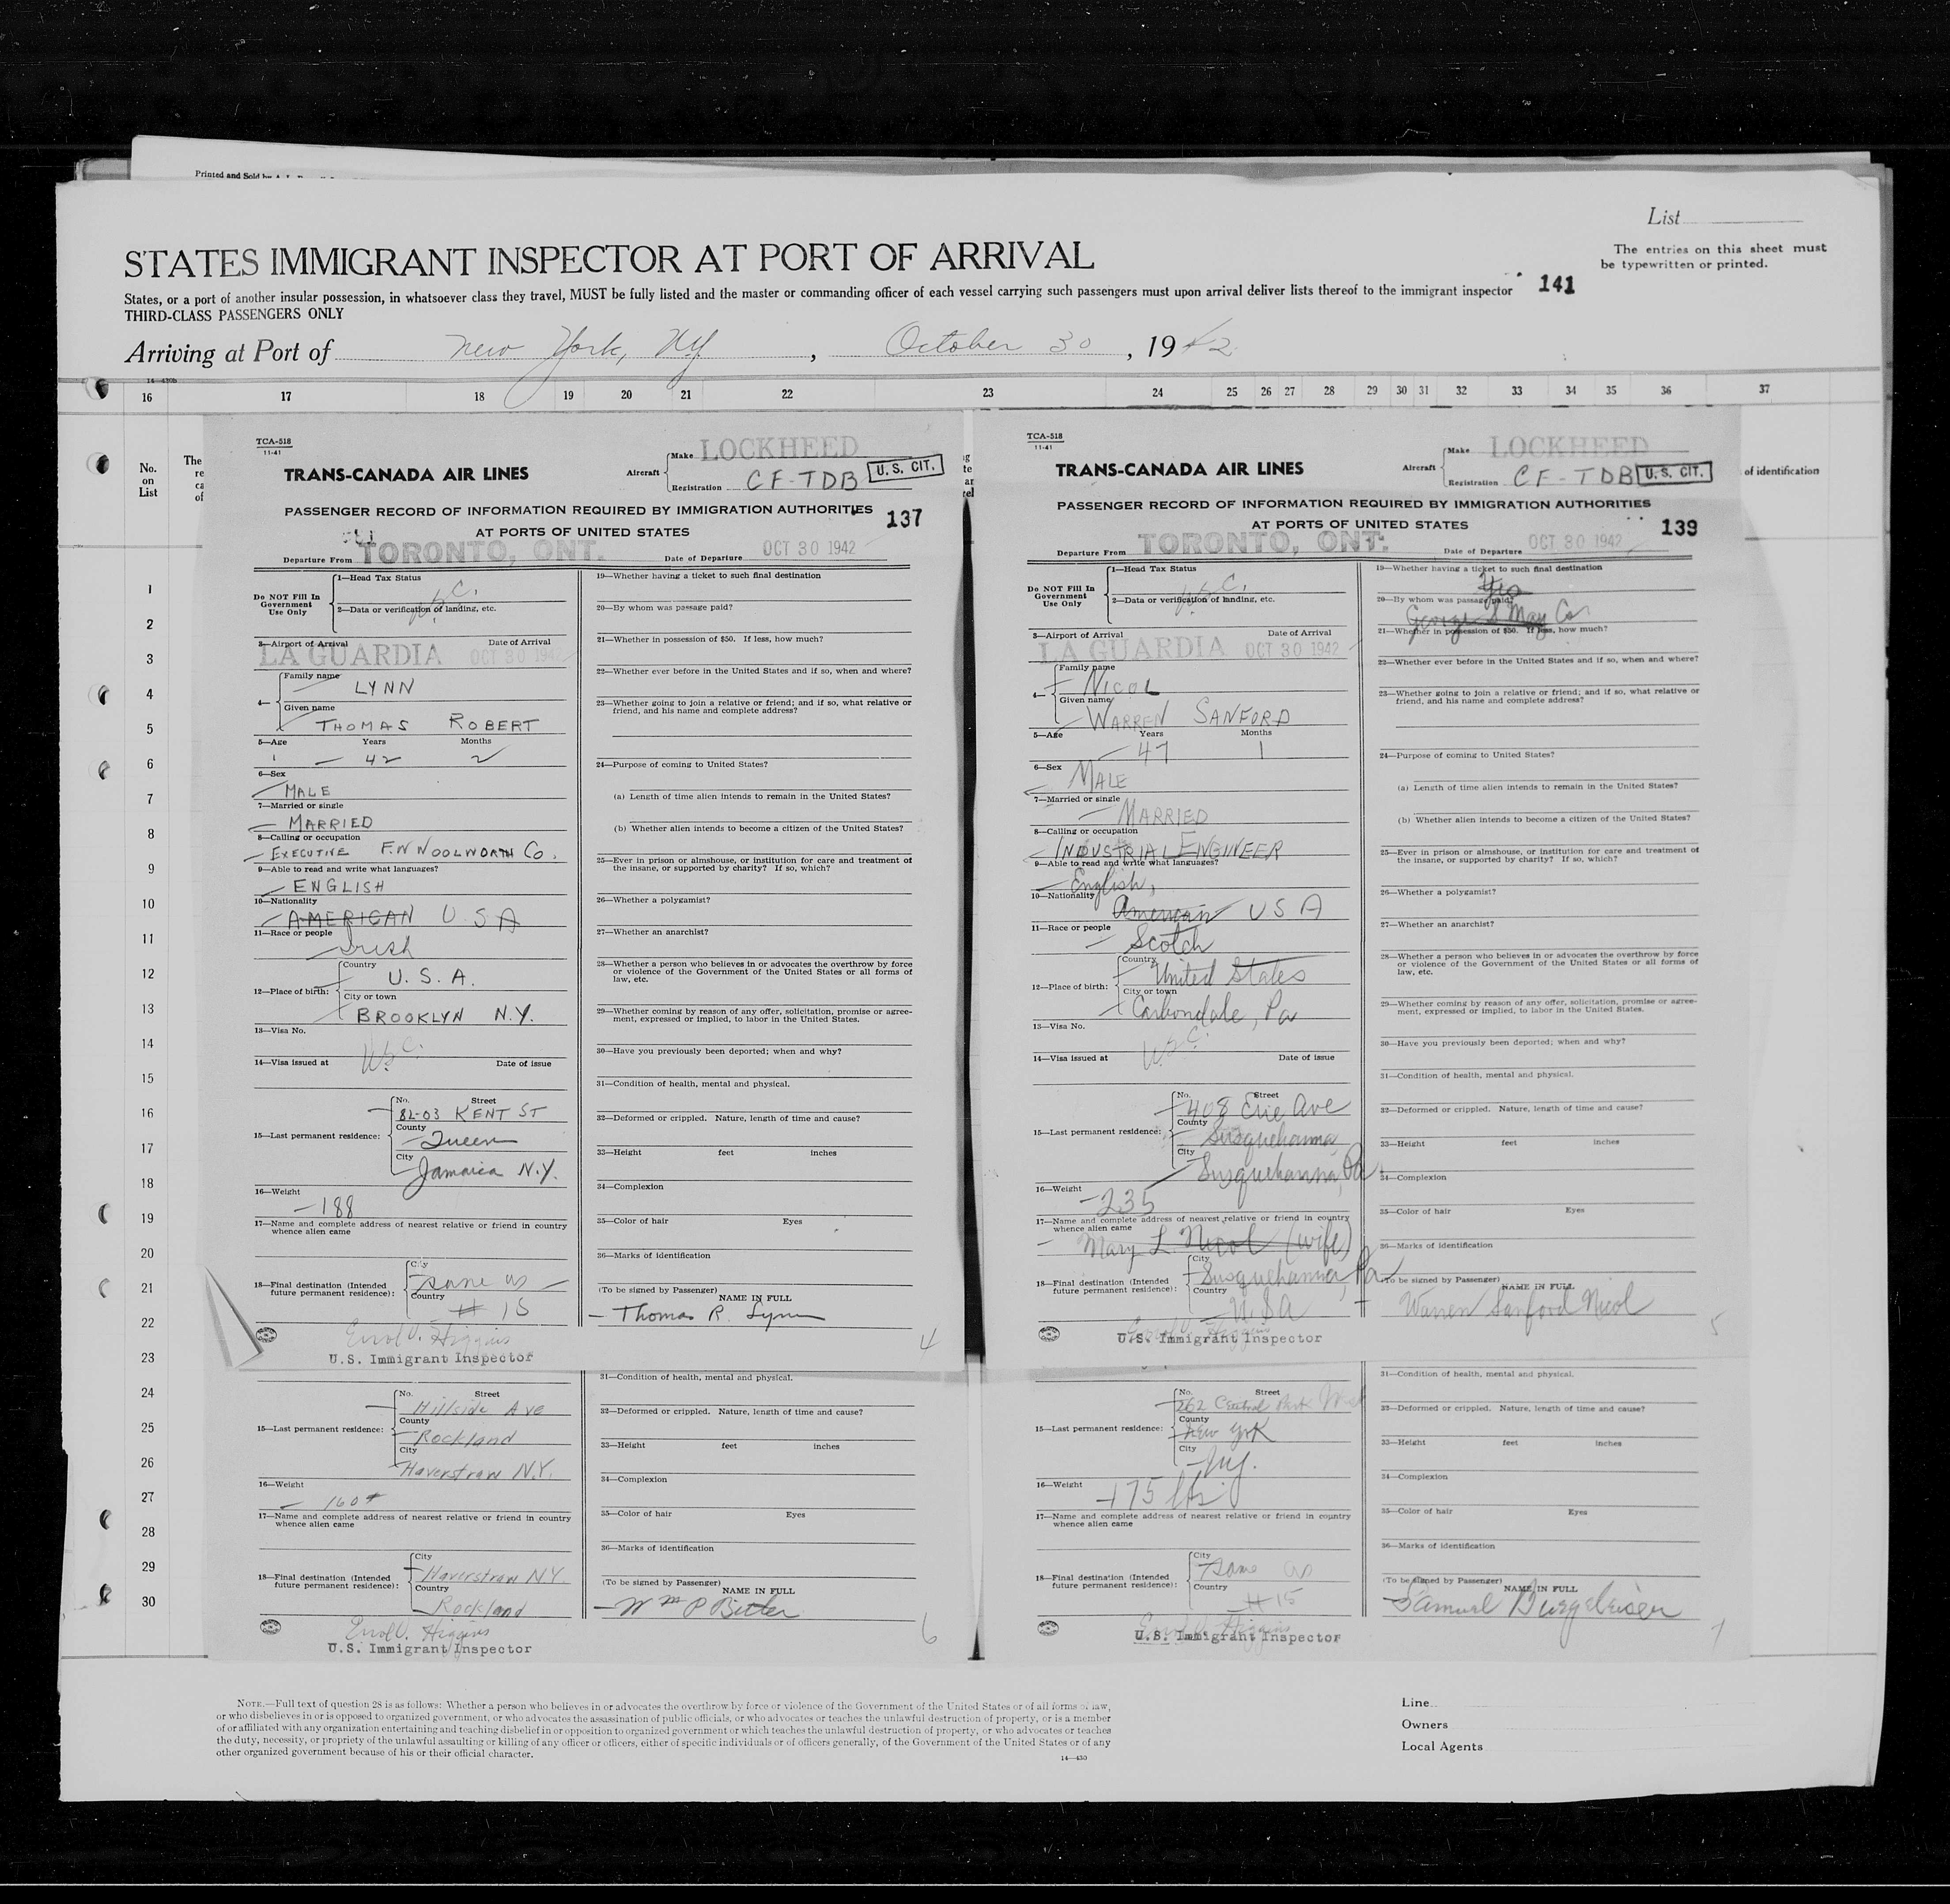 Printed and Sold by
List
The entries on this sheet must
be typewritten or printed.
STATES IMMIGRANT INSPECTOR AT PORT OF ARRIVAL
States, or a port of another insular possession, in whatsoever class they travel, MUST be fully listed and the master or commanding officer of each vessel carrying such passengers must upon arrival deliver lists thereof to the immigrant inspector 141
THIRD-CLASS PASSENGERS ONLY
Arriving at Port of New York, NY, October 30, 1942
16 17 18 19 20 21 22 23 24 25 26 27 28 29 30 31 32 33 34 35 36 37
No.
on
List
The
re
ca
of
of identification
1
2
3
4
5
6
7
8
9
10
11
12
13
14
15
16
17
18
19
20
21
22
23
24
25
26
27
28
29
30
TCA-518
11-41
TRANS-CANADA AIR LINES
Aircraft
Make LOCKHEED
Registration CF-TDB
U. S. CIT.
PASSENGER RECORD OF INFORMATION REQUIRED BY IMMIGRATION AUTHORITIES
AT PORTS OF UNITED STATES
137
Departure From TORONTO, ONT. Date of Departure OCT 30 1942
Do NOT Fill In
Government
Use Only
1—Head Tax Status
2—Data or verification of landing, etc.
3—Airport of Arrival Date of Arrival
LA GUARDIA OCT 30 1942
4—
Family name
LYNN
Given name
THOMAS ROBERT
5—Age Years Months
42 2
6—Sex
MALE
7—Married or single
MARRIED
8—Calling or occupation
EXECUTIVE F.W WOOLWORTH CO.
9—Able to read and write what languages?
ENGLISH
10—Nationality
AMERICAN U S A
11—Race or people
Irish
12—Place of birth:
Country
U. S. A.
City or town
BROOKLYN N.Y.
13—Visa No.
USC.
14—Visa issued at Date of issue
15—Last permanent residence:
No. Street
82-03 KENT ST
County
Queen
City
Jamaica N.Y.
16—Weight
188
17—Name and complete address of nearest relative or friend in country
whence alien came
18—Final destination (Intended
future permanent residence):
City
same as
Country
# 15
Errol V. Higgins
U.S. Immigrant Inspector
19—Whether having a ticket to such final destination
20—By whom was passage paid?
21—Whether in possession of $50. If less, how much?
22—Whether ever before in the United States and if so, when and where?
23—Whether going to join a relative or friend; and if so, what relative or
friend, and his name and complete address?
24—Purpose of coming to United States?
(a) Length of time alien intends to remain in the United States?
(b) Whether alien intends to become a citizen of the United States?
25—Ever in prison or almshouse, or institution for care and treatment of
the insane, or supported by charity? If so, which?
26—Whether a polygamist?
27—Whether an anarchist?
28—Whether a person who believes in or advocates the overthrow by force
or violence of the Government of the United States or all forms of
law, etc.
29—Whether coming by reason of any offer, solicitation, promise or agree-
ment, expressed or implied, to labor in the United States.
30—Have you previously been deported; when and why?
31—Condition of health, mental and physical.
32—Deformed or crippled. Nature, length of time and cause?
33—Height feet inches
34—Complexion
35—Color of hair Eyes
36—Marks of identification
(To be signed by Passenger)
NAME IN FULL
Thomas R. Lynn
4
TCA-518
11-41
TRANS-CANADA AIR LINES
Aircraft
Make LOCKHEED
Registration CF-TDB
U. S. CIT.
PASSENGER RECORD OF INFORMATION REQUIRED BY IMMIGRATION AUTHORITIES
AT PORTS OF UNITED STATES
139
Departure From TORONTO, ONT. Date of Departure OCT 30 1942
Do NOT Fill In
Government
Use Only
1—Head Tax Status
USC.
2—Data or verification of landing, etc.
3—Airport of Arrival Date of Arrival
LA GUARDIA OCT 30 1942
4—
Family name
NICOL
Given name
WARREN SANFORD
5—Age Years Months
47 1
6—Sex
MALE
7—Married or single
MARRIED
8—Calling or occupation
INDUSTRIAL ENGINEER
9—Able to read and write what languages?
English,
10—Nationality
American U S A
11—Race or people
Scotch
12—Place of birth:
Country
United States
City or town
Carbondale, Pa
13—Visa No.
USC.
14—Visa issued at Date of issue
15—Last permanent residence:
No. Street
408 Erie Ave
County
Susquehanna
City
Susquehanna, Pa
16—Weight
235
17—Name and complete address of nearest relative or friend in country
whence alien came
Mary L. Nicol (wife)
18—Final destination (Intended
future permanent residence):
City
Susquehanna, Pa
Country
U.S.A
Errol V. Higgins
U.S. Immigrant Inspector
19—Whether having a ticket to such final destination
Yes
20—By whom was passage paid?
George S May Co
21—Whether in possession of $50. If less, how much?
22—Whether ever before in the United States and if so, when and where?
23—Whether going to join a relative or friend; and if so, what relative or
friend, and his name and complete address?
24—Purpose of coming to United States?
(a) Length of time alien intends to remain in the United States?
(b) Whether alien intends to become a citizen of the United States?
25—Ever in prison or almshouse, or institution for care and treatment of
the insane, or supported by charity? If so, which?
26—Whether a polygamist?
27—Whether an anarchist?
28—Whether a person who believes in or advocates the overthrow by force
or violence of the Government of the United States or all forms of
law, etc.
29—Whether coming by reason of any offer, solicitation, promise or agree-
ment, expressed or implied, to labor in the United States.
30—Have you previously been deported; when and why?
31—Condition of health, mental and physical.
32—Deformed or crippled. Nature, length of time and cause?
33—Height feet inches
34—Complexion
35—Color of hair Eyes
36—Marks of identification
(To be signed by Passenger)
NAME IN FULL
Warren Sanford Nicol
5
15—Last permanent residence:
No. Street
Hillside Ave
County
Rockland
City
Haverstraw N.Y.
16—Weight
160#
17—Name and complete address of nearest relative or friend in country
whence alien came
18—Final destination (Intended
future permanent residence):
City
Haverstraw NY.
Country
Rockland
Errol V. Higgins
U.S. Immigrant Inspector
31—Condition of health, mental and physical.
32—Deformed or crippled. Nature, length of time and cause?
33—Height feet inches
34—Complexion
35—Color of hair Eyes
36—Marks of identification
(To be signed by Passenger)
NAME IN FULL
Wm P Bitler
6
15—Last permanent residence:
No. Street
262 Central Park West
County
New York
City
N.Y.
16—Weight
175 lbs
17—Name and complete address of nearest relative or friend in country
whence alien came
18—Final destination (Intended
future permanent residence):
City
same as
Country
# 15
Errol V. Higgins
U.S. Immigrant Inspector
31—Condition of health, mental and physical.
32—Deformed or crippled. Nature, length of time and cause?
33—Height feet inches
34—Complexion
35—Color of hair Eyes
36—Marks of identification
(To be signed by Passenger)
NAME IN FULL
Samuel
7
NOTE.—Full text of question 28 is as follows: Whether a person who believes in or advocates the overthrow by force or violence of the Government of the United States or of all forms of law,
or who disbelieves in or is opposed to organized government, or who advocates the assassination of public officials, or who advocates or teaches the unlawful destruction of property, or is a member
of or affiliated with any organization entertaining and teaching disbelief in or opposition to organized government or which teaches the unlawful destruction of property, or who advocates or teaches
the duty, necessity, or propriety of the unlawful assaulting or killing of any officer or officers, either of specific individuals or of officers generally, of the Government of the United States or of any
other organized government because of his or their official character.
14—430
Line
Owners
Local Agents